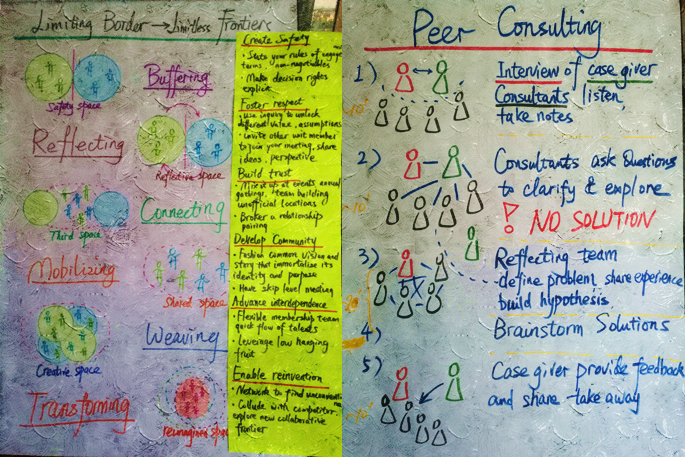 Limiting Border → Limitless Frontiers
Buffering
Safety space
Reflecting
Reflective space
Connecting
Third space
Mobilizing
Shared space
Weaving
Creative space
Transforming
reimagined spa
Create Safety
• State your rules of engage
terms, non-negotiables
• Make decision rights
explicit
Foster respect
• Use inquiry to unlock
different value, assumptions
• Invite other unit member
to join your meeting, share
ideas, perspective
Build trust
• Mixed up at events, annual
gatherings, team building
unofficial locations
• Broker a relationship
pairing
Develop Community
• Fashion common vision and
story that immortalize its
identity and purpose
• Have skip level meeting
Advance interdependence
• Flexible membership team
quick flow of talents
• Leverage low hanging
fruit
Enable reinvention
• Network to find
• Collude with competitor
explore new collaborative
frontier
Peer Consulting
1)
Interview of case giver
Consultants listen,
take notes
2)
Consultants ask Questions
to clarify & explore
! NO SOLUTION
3)
Reflecting team
define problem, share experience
build hypothesis
4)
Brainstorm Solutions
5)
Case giver provide feedback
and share take away